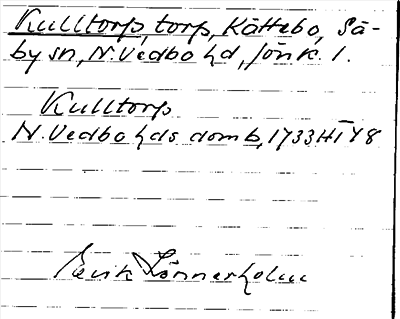 Kulltorp, torp, Kättebo, Sä-
by sn, N. Vedbo hd, Jönk. l.
Kulltorp
N. Vedbo hds domb, 1733 HT § 8
Erik Lönnerholm